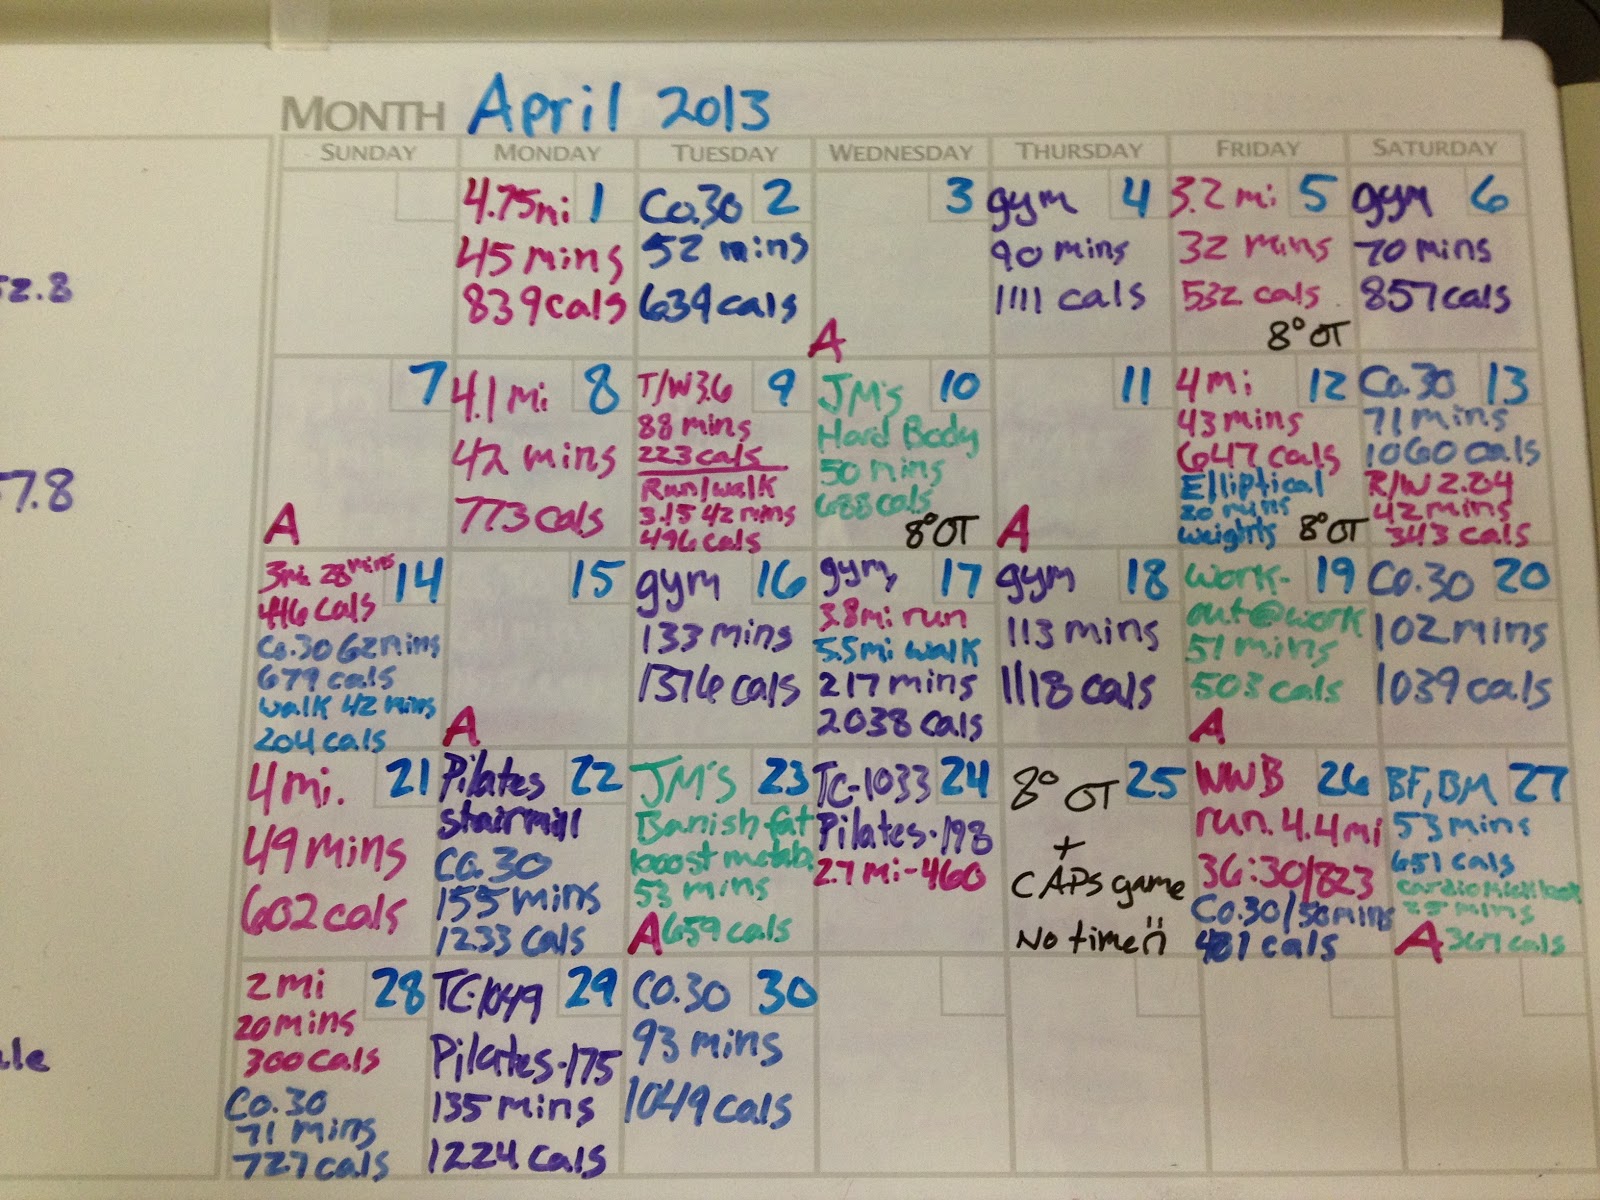 MONTH April 2013
SUNDAY MONDAY TUESDAY WEDNESDAY THURSDAY FRIDAY SATURDAY
52.8
7.8
ale
4.75mi 1
45 mins
839 cals
Co.30 2
52 mins
634 cals
3
A
gym 4
90 mins
1111 cals
3.2 mi 5
32 mins
532 cals
8° OT
gym 6
70 mins
857 cals
7
A
4.1 mi 8
42 mins
773 cals
T/W 3.6 9
88 mins
223 cals
Run/walk
3.15 42 mins
496 cals
JM's 10
Hard Body
50 mins
688 cals
8° OT
11
A
4 mi 12
43 mins
647 cals
Elliptical
20 mins
weights 8° OT
Co.30 13
71 mins
1060 cals
R/W 2.84
42 mins
343 cals
3mi 28 mins 14
446 cals
Co.30 62 mins
679 cals
walk 42 mins
204 cals
15
A
gym 16
133 mins
1376 cals
gym, 17
3.8mi run
5.5mi walk
217 mins
2038 cals
gym 18
113 mins
1118 cals
work- 19
out@work
51 mins
503 cals
A
Co.30 20
102 mins
1039 cals
4 mi. 21
49 mins
602 cals
Pilates 22
stairmill
Co.30
155 mins
1233 cals
JM's 23
Banish fat
boost metab.
53 mins
A 659 cals
TC-1033 24
Pilates-198
2.7 mi-460
8° OT 25
+
CAPS game
No time
WWB 26
run. 4.4 mi
36:30/823
Co.30/50 mins
481 cals
BF, BM 27
53 mins
651 cals
cardio kickbox
25 mins
A 367 cals
2 mi 28
20 mins
300 cals
Co.30
71 mins
727 cals
TC-1049 29
Pilates-175
135 mins
1224 cals
Co.30 30
93 mins
1049 cals